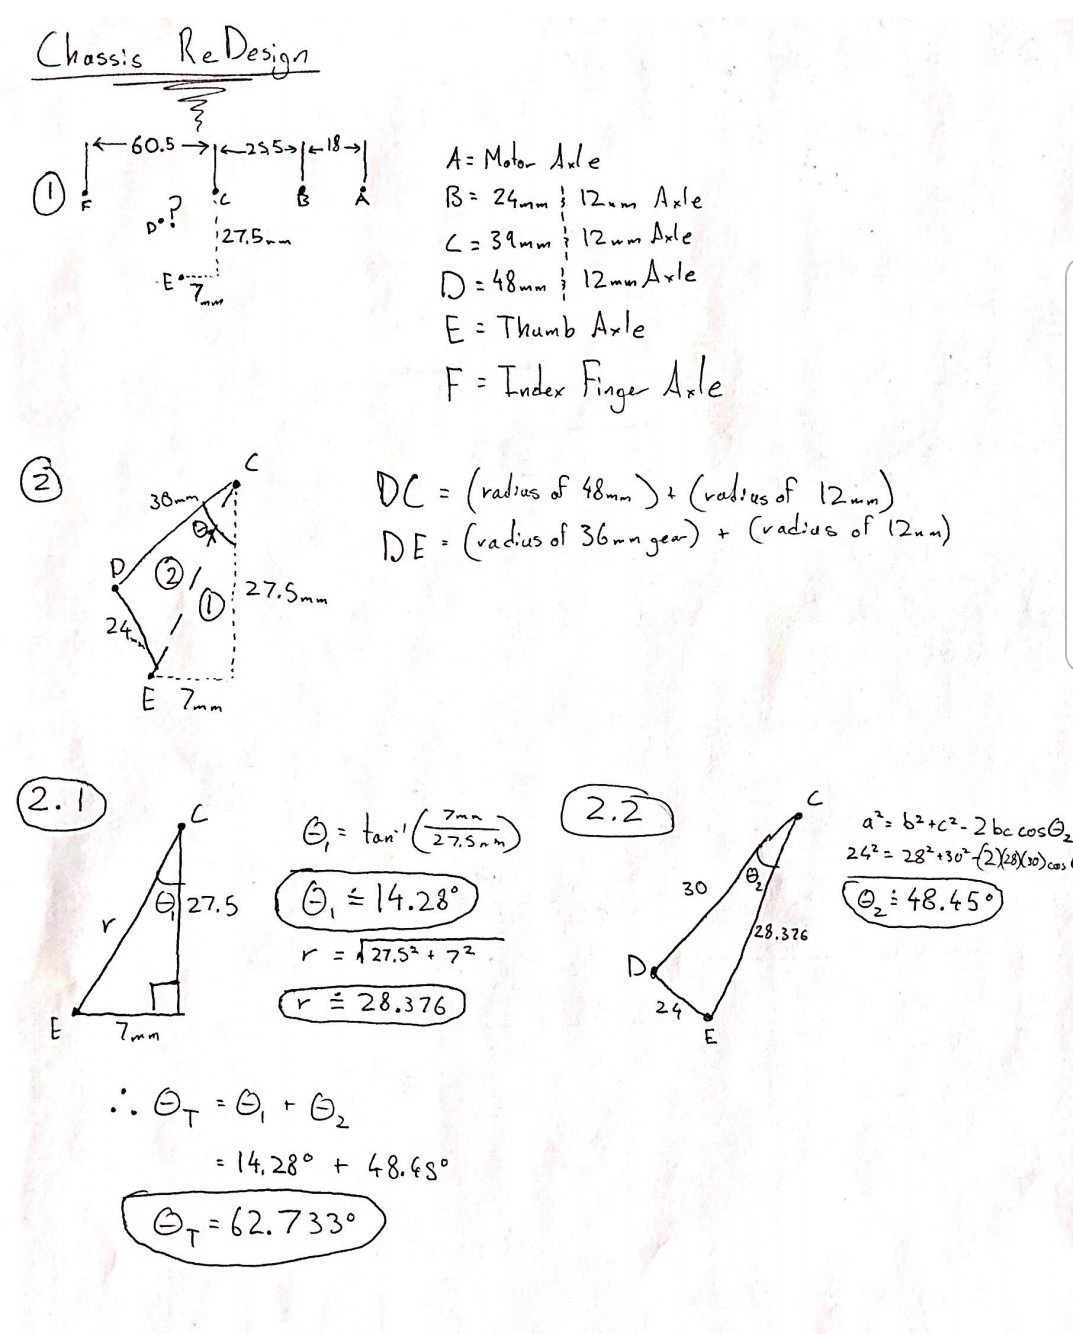 Chassis ReDesign
←60.5→ ←25.5→ ←18→
① F C B A
D ?
27.5mm
E
7mm
A = Motor Axle
B = 24mm ; 12mm Axle
C = 39mm ; 12mm Axle
D = 48mm ; 12mm Axle
E = Thumb Axle
F = Index Finger Axle
②
C
30mm
D
② ①
27.5mm
24mm
E 7mm
DC = (radius of 48mm) + (radius of 12mm)
DE = (radius of 36mm gear) + (radius of 12mm)
2.1
C
θ₁ 27.5
r
E 7mm
θ₁ = tan⁻¹ (7mm / 27.5mm)
θ₁ ≐ 14.28°
r = √27.5² + 7²
r ≐ 28.376
2.2
C
θ₂
30
28.376
D
24
E
a² = b² + c² - 2bc cosθ₂
24² = 28² + 30² - (2)(28)(30) cos
θ₂ ≐ 48.45°
∴ θT = θ₁ + θ₂
= 14.28° + 48.45°
θT = 62.733°